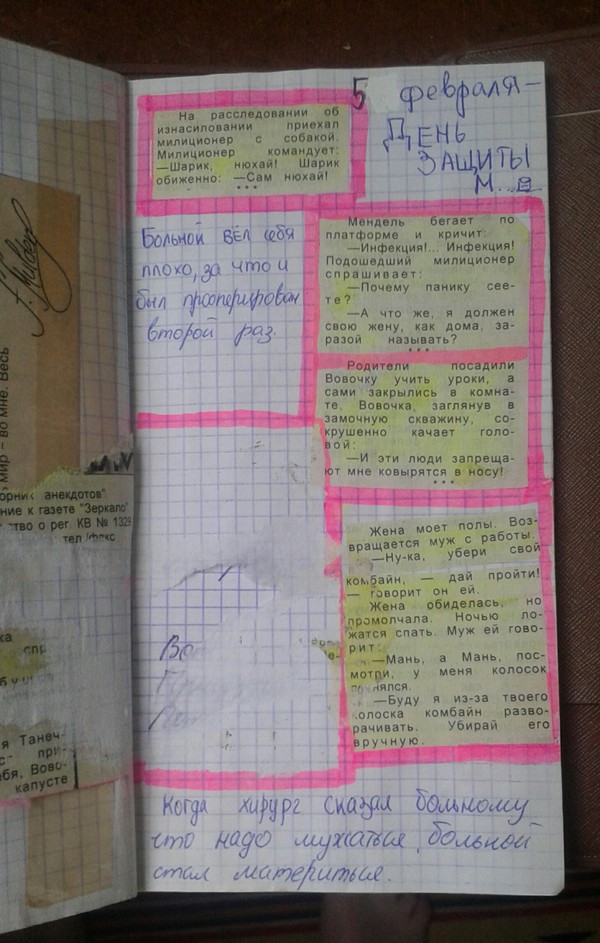 5 февраля-
ДЕНЬ
ЗАЩИТЫ
М...
На расследовании об
изнасиловании приехал
милиционер с собакой.
Милиционер командует:
—Шарик, нюхай! Шарик
обиженно: —Сам нюхай!
* * *
Больной вёл себя
плохо, за что и
был прооперирован
второй раз.
Мендель бегает по
платформе и кричит:
—Инфекция!... Инфекция!
Подошедший милиционер
спрашивает:
—Почему панику сее-
те?
—А что же, я должен
свою жену, как дома, за-
разой называть?
* * *
Родители посадили
Вовочку учить уроки, а
сами закрылись в комна-
те. Вовочка, заглянув в
замочную скважину, со-
крушенно качает голо-
вой:
—И эти люди запреща-
ют мне ковырятся в носу!
* * *
Жена моет полы. Воз-
вращается муж с работы.
—Ну-ка, убери свой
комбайн, — дай пройти!
— говорит он ей.
Жена обиделась, но
промолчала. Ночью ло-
жатся спать. Муж ей гово-
рит:
—Мань, а Мань, пос-
мотри, у меня колосок
поднялся.
—Буду я из-за твоего
колоска комбайн разво-
рачивать. Убирай его
вручную.
Когда хирург сказал больному
что надо мужаться, больной
стал материться.
мир – во мне. Весь
анекдотов"
к газете "Зеркало"
о рег. КВ № 1329
тел
я Танеч-
при-
Вово-
капусте